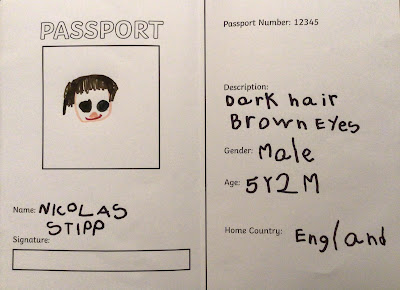 PASSPORT
Name: NICOLAS
STIPP
Signature:
Passport Number: 12345
Description:
Dark hair
Brown Eyes
Gender: Male
Age: 5Y2M
Home Country: England